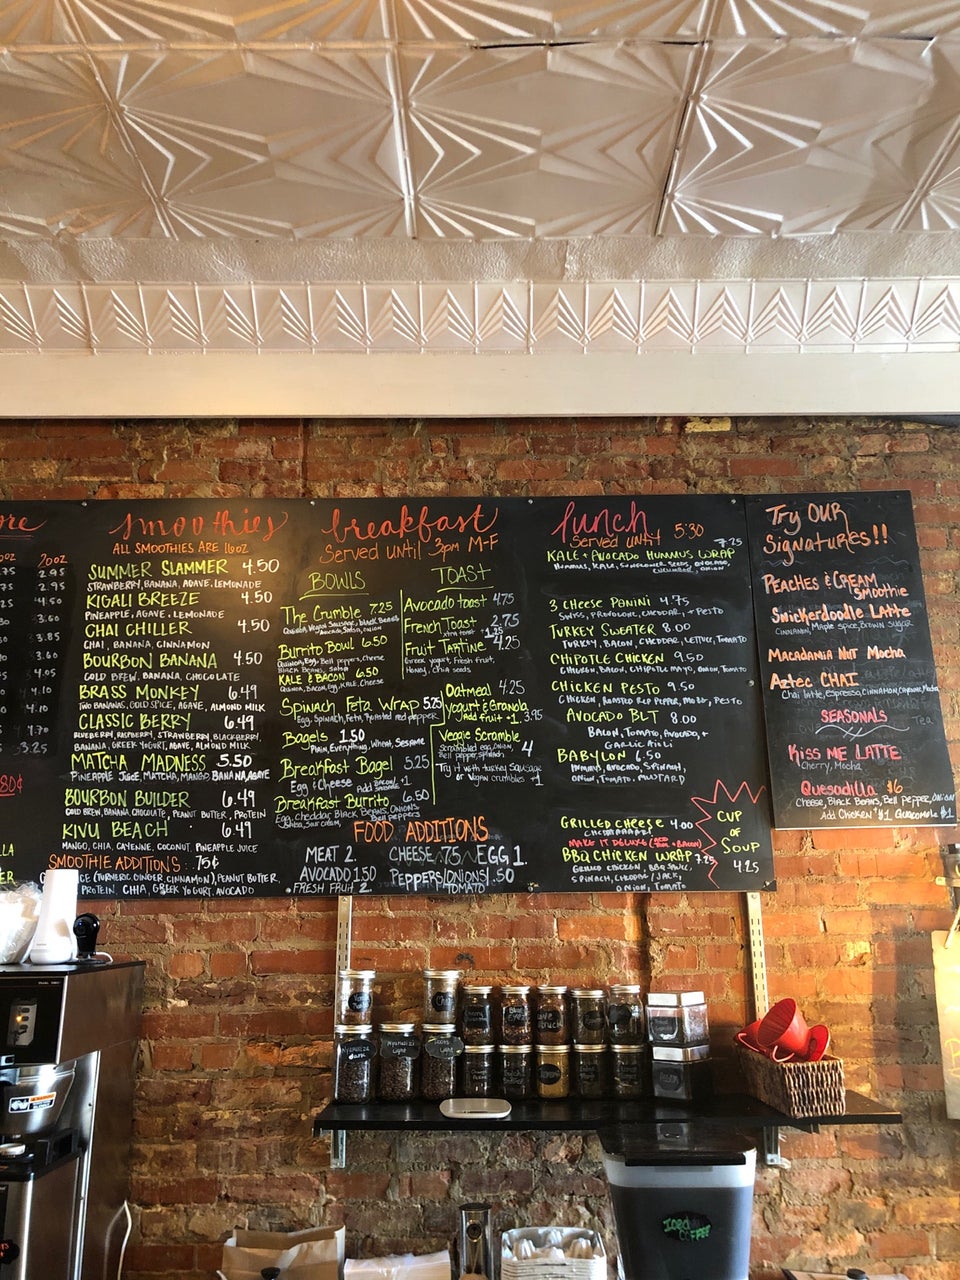 ore
20oz
2.95
2.95
4.50
3.60
3.85
3.60
4.05
4.10
4.10
4.70
3.25
80¢
smoothies
ALL SMOOTHIES ARE 16oz
SUMMER SLAMMER 4.50
STRAWBERRY, BANANA, AGAVE, LEMONADE
KIGALI BREEZE 4.50
PINEAPPLE, AGAVE, LEMONADE
CHAI CHILLER 4.50
CHAI, BANANA, CINNAMON
BOURBON BANANA 4.50
COLD BREW, BANANA, CHOCOLATE
BRASS MONKEY 6.49
TWO BANANAS, COLD SPICE, AGAVE, ALMOND MILK
CLASSIC BERRY 6.49
BLUEBERRY, RASPBERRY, STRAWBERRY, BLACKBERRY,
BANANA, GREEK YOGURT, AGAVE, ALMOND MILK
MATCHA MADNESS 5.50
PINEAPPLE JUICE, MATCHA, MANGO, BANANA, AGAVE
BOURBON BUILDER 6.49
COLD BREW, BANANA, CHOCOLATE, PEANUT BUTTER, PROTEIN
KIVU BEACH 6.49
MANGO, CHIA, CAYENNE, COCONUT, PINEAPPLE JUICE
SMOOTHIE ADDITIONS: 75¢
(TURMERIC, GINGER, CINNAMON), PEANUT BUTTER,
PROTEIN, CHIA, GREEK YOGURT, AVOCADO
breakfast
Served until 3pm M-F
BOWLS
The Crumble 7.25
Quinoa, Vegan Sausage, Black Beans
Avocado, Salsa, onion
Burrito Bowl 6.50
Quinoa, Egg, Bell peppers, Cheese
Black Beans, Salsa
KALE & BACON 6.50
Quinoa, Bacon, Egg, KALE, Cheese
Spinach Feta Wrap 5.25
Egg, Spinach, Feta, Roasted red pepper
Bagels 1.50
Plain, Everything, Wheat, Sesame
Breakfast Bagel 5.25
Egg & Cheese Add +1
Breakfast Burrito 6.50
Egg, cheddar, Black Beans, Onions
Salsa, Sour cream, Bell peppers
TOAST
Avocado toast 4.75
French Toast 2.75
xtra toast +1.25
Fruit Tartine 4.25
Greek yogurt, Fresh Fruit,
Honey, chia seeds
Oatmeal 4.25
Yogurt & Granola 3.95
Add fruit +1
Veggie Scramble 4
Scrambled egg, Onion,
Bell pepper, spinach
Try it with turkey Sausage
or Vegan crumbles +1
FOOD ADDITIONS
MEAT 2. CHEESE .75 EGG 1.
AVOCADO 1.50 PEPPERS/ONIONS/ .50
FRESH FRUIT 2. TOMATO
lunch
Served until 5:30
KALE + AVOCADO HUMMUS WRAP 7.25
HUMMUS, KALE, SUNFLOWER SEEDS, AVOCADO,
CUCUMBER, ONION
3 CHEESE PANINI 4.75
SWISS, PROVOLONE, CHEDDAR, + PESTO
TURKEY SWEATER 8.00
TURKEY, BACON, CHEDDAR, LETTUCE, TOMATO
CHIPOTLE CHICKEN 9.50
CHICKEN, BACON, CHIPOTLE MAYO, ONION, TOMATO
CHICKEN PESTO 9.50
CHICKEN, ROASTED RED PEPPER, MOZ, PESTO
AVOCADO BLT 8.00
BACON, TOMATO, AVOCADO, +
GARLIC AIOLI
BABYLON 6.50
HUMMUS, AVOCADO, SPINACH,
ONION, TOMATO, MUSTARD
GRILLED CHEESE 4.00
MAKE IT DELUXE
BBQ CHICKEN WRAP 7.25
GRILLED CHICKEN, BBQ SAUCE,
SPINACH, CHEDDAR/JACK,
ONION, TOMATO
CUP
OF
SOUP
4.25
Try OUR
Signatures!!
PEACHES & CREAM
Smoothie
Snickerdoodle Latte
Cinnamon, Maple spice, Brown sugar
MACADAMIA NUT Mocha
Aztec CHAI
Chai latte, Espresso, Cinnamon, Cayenne, Mocha
SEASONALS
Tea
Kiss ME LATTE
Cherry, Mocha
Quesadilla $6
Cheese, Black Beans, Bell pepper, onion
Add Chicken $1 Guacamole $1
ICED
COFFEE